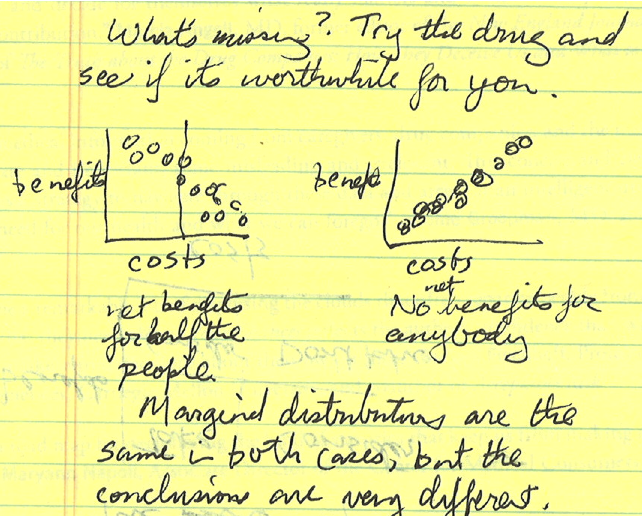 What's missing? Try the drug and
see if it's worthwhile for you.
benefits
costs
net benefits
for half the
people.
benefit
costs
No net benefits for
anybody
Marginal distributions are the
same in both cases, but the
conclusions are very different.